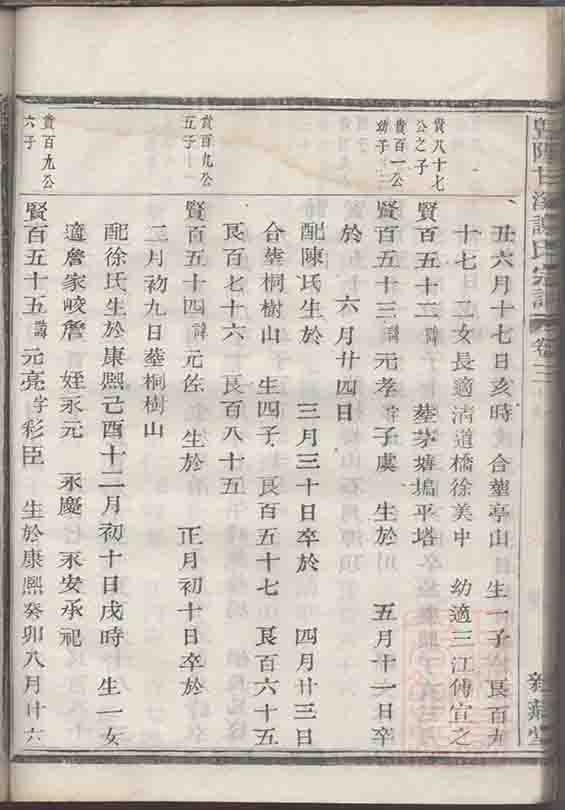 甘溪謝氏宗譜 卷三
丑六月十七日亥時 合塟亭山 生一子 良百九
十七 二女長適清道橋徐美中 幼適三江傅宣之
貴八十七公之子
賢百五十二 諱 塟茅塘塢平塔
貴百一公幼子
賢百五十三 諱元孝 字子虞 生於 五月十一日卒
於 六月廿四日
配陳氏生於 三月三十日卒於 四月廿三日
合塟桐樹山 生四子 良百五十七 良百六十五
良百七十六 良百八十五
貴百九公五子
賢百五十四 諱元 生於 正月初十日卒於
二月初九日塟桐樹山
配徐氏生於康熙己酉十二月初十日戌時 生一女
適詹家峻詹 姪永元 永慶 永安承祀
貴百九公六子
賢百五十五 諱元亮 字彩臣 生於康熙癸卯八月廿六